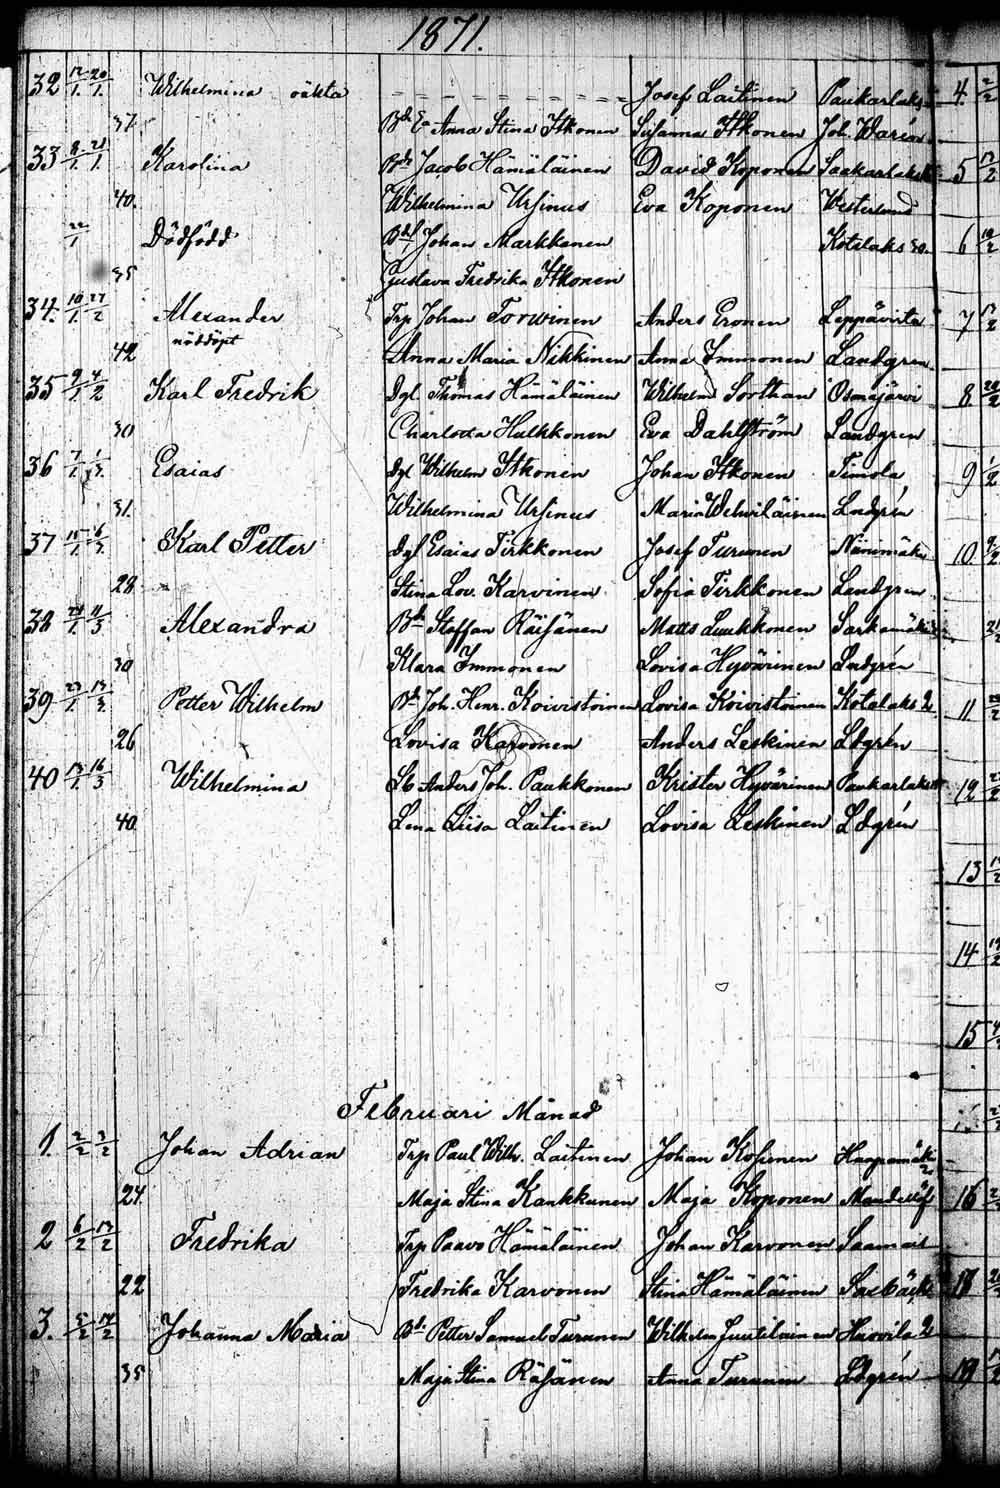 1871.
32 12/1 20/1 Wilhelmina oäkta = = = = = = Josef Laitinen Paukarlaks
37. Anna Stina Itkonen Susanna Itkonen Joh. Warén
33 8/1 21/1 Karolina Bd Jacob Hämäläinen David Koponen Saakarlaks
40. Wilhelmina Ursinus Eva Koponen Westerlund
22/1 Dödfödd Bd Johan Markkanen Kotelaks 30.
35 Gustava Fredrika Itkonen
34. 10/1 27/2 Alexander Trp Johan Torwinen Anders Eronen Leppävirta
nöddöpt
42 Anna Maria Nikkinen Anna Immonen Landgren
35 9/1 4/2 Karl Fredrik Dgl Thomas Hämäläinen Wilhelm Sorthan Osmajärvi
30 Charlotta Hulkkonen Eva Dahlström Landgren
36 7/1 1/3 Esaias Dgl Wilhelm Itkonen Johan Itkonen Timola
31. Wilhelmina Ursinus Maria Wehviläinen Lndgrén
37 15/1 6/3 Karl Petter Dgl Esaias Tirkkonen Josef Turunen Niinimäki
28 Stina Lov. Karvinen Sofia Tirkkonen Landgren
38 24/1 11/3 Alexandra Bd Staffan Räisänen Matts Luukkonen Sarkamäki
30 Klara Immonen Lovisa Hyvärinen Lndgrén
39 23/1 13/3 Petter Wilhelm Bd Joh. Henr. Koivistoinen Lovisa Koivistoinen Kotalaks 2
26 Lovisa Karvonen Anders Leskinen Ldgrén
40 13/1 16/3 Wilhelmina Anders Joh. Paukkonen Krister Hyvärinen Paukarlaks
40. Lena Liisa Laitinen Lovisa Leskinen Ldgrén
Februari Månad
1. 2/2 3/2 Johan Adrian Trp Paul Wilh. Laitinen Johan Kosunen Haapamäki 2
24 Maja Stina Kaukkunen Maja Koponen Mandellöf
2 6/2 13/2 Fredrika Trp Paavo Hämäläinen Johan Karvonen Saamais
22 Fredrika Karvonen Stina Hämäläinen
3. 5/2 14/2 Johanna Maria Bd Petter Samuel Turunen Wilhelm Juutilainen Huovila 2
35 Maja Stina Räsänen Anna Turunen Ldgrén
4.
5
6
7
8.
9
10
11
12
13
14
15
16
18
19